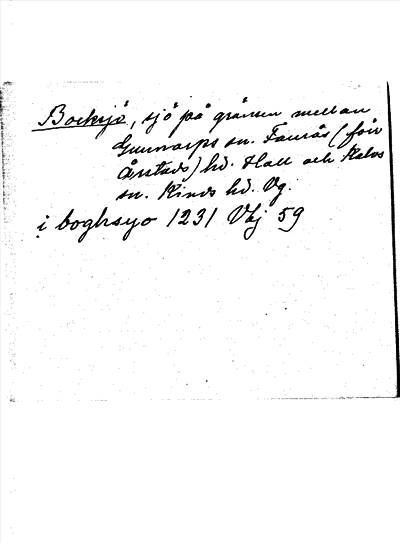 Bocksjö, sjö på gränsen mellan
Gunnarps sn. Faurås (förr
Årstads) hd. Hall och Kalvs
sn. Kinds hd. Vg.
i boghsyo 1231 Vhj 59